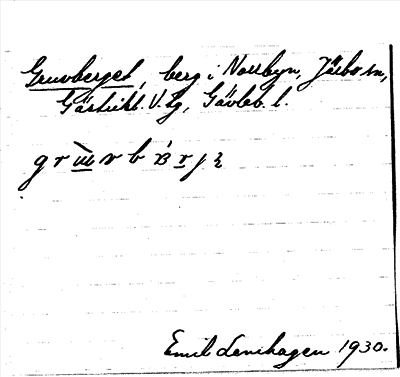 Gruvberget, berg i Norrbyn, Järbo sn,
Gästrikl. V. tg, Gävleb. l.
Emil Lenihagen 1930.